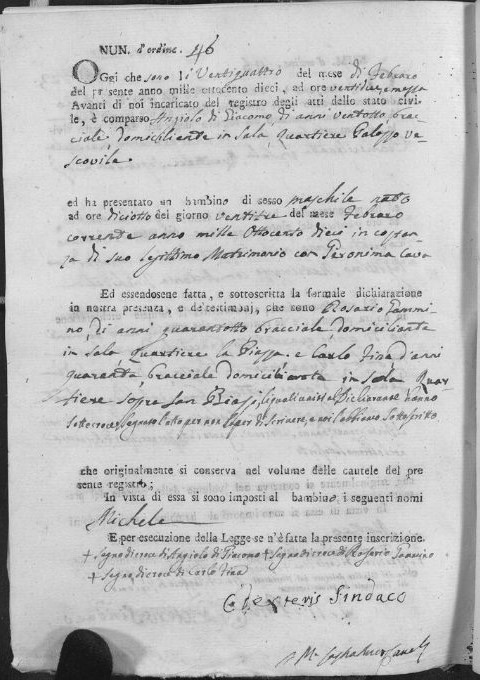 NUN. d'ordine. 46
Oggi che sono li Ventiquattro del mese di Febraro
del presente anno mille ottocento dieci, ad ore ventidue, e mezza
Avanti di noi incaricato del registro degli atti dello stato civi-
le, è comparso Angiolo di Giacomo di anni ventotto brac-
ciale, domiciliante in Sala Quartiere Palazzo Ve-
scovile.
ed ha presentato un bambino di sesso maschile nato
ad ore diciotto del giorno ventitre del mese Febraro
corrente anno mille Ottocento dieci in costan-
za di suo legittimo Matrimonio con Geronima Cava
Ed essendosene fatta, e sottoscritta la formale dichiarazione
in nostra presenza, e de' testimonj, che sono Rosario Iannni-
no, di anni quarantotto bracciale domiciliante
in Sala Quartiere la Piazza. e Carlo Fina d'anni
quaranta bracciale domiciliante in Sala Quar-
tiere sopra San Biase, i quali uniti al Dichiarante hanno
sottocrocesegnato l'atto per non saper di scrivere, e noi l'abbiamo sottoscritto
che originalmente si conserva nel volume delle cautele del pre
sente registro;
In vista di essa si sono imposti al bambino i seguenti nomi
Michele
E per esecuzione della Legge se n'è fatta la presente inscrizione.
+ Segno di croce di Angiolo di Giacomo + Segno di croce di Rosario Iannino
+ Segno di croce di Carlo Fina
Sindaco